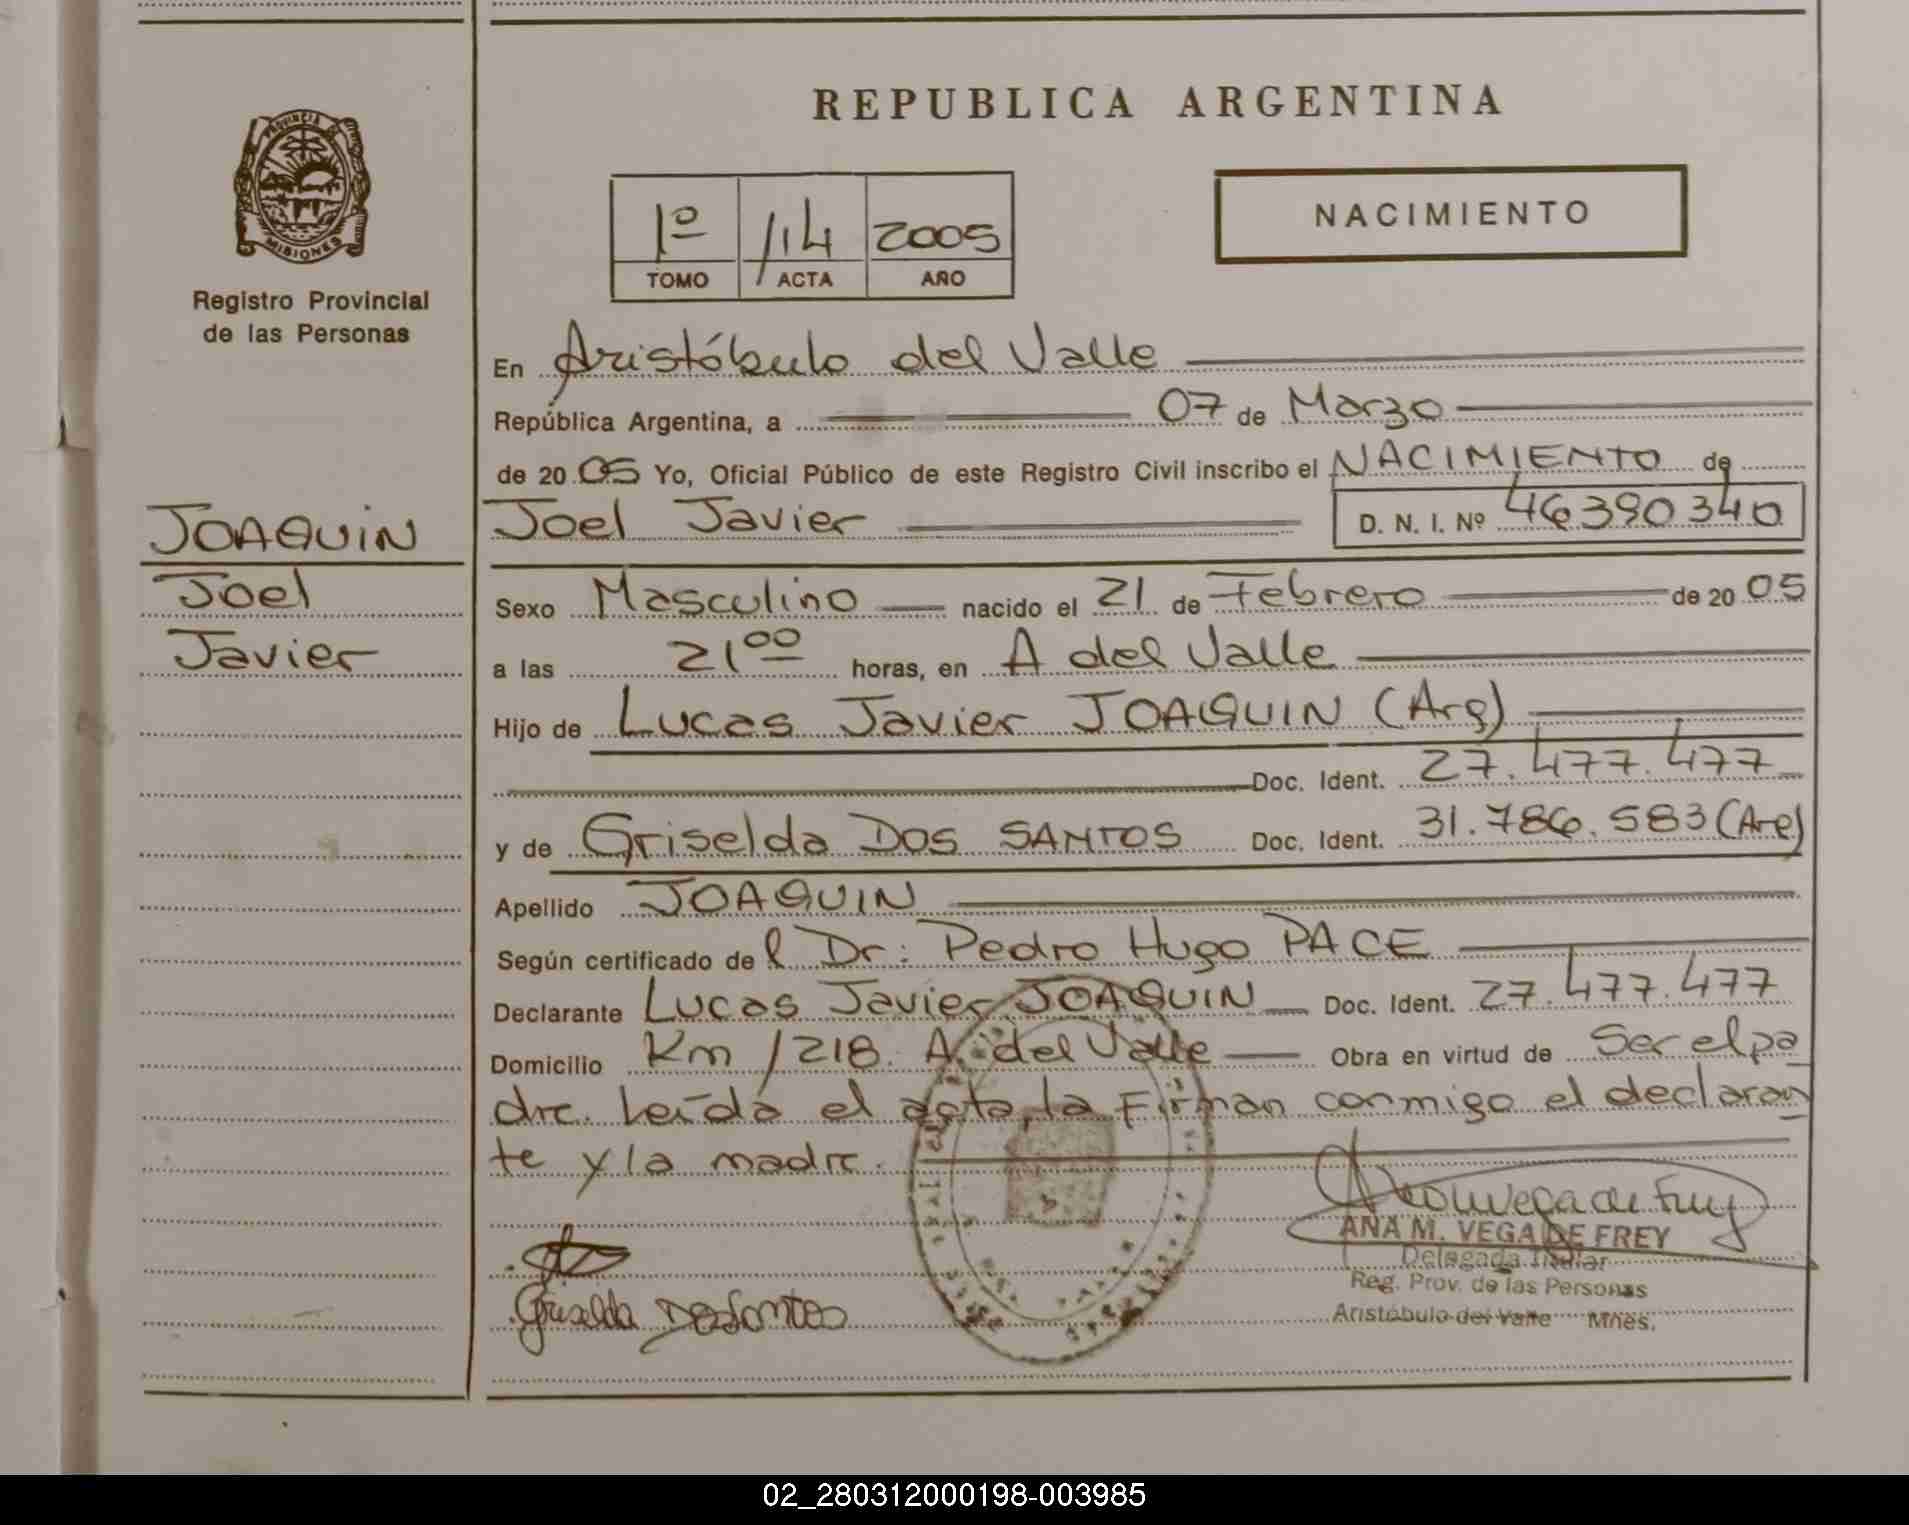 PROVINCIA DE
MISIONES
Registro Provincial
de las Personas
JOAQUIN
Joel
Javier
REPUBLICA ARGENTINA
1º /14 2005
TOMO ACTA AÑO
NACIMIENTO
En Aristóbulo del Valle
República Argentina, a 07 de Marzo
de 2005 Yo, Oficial Público de este Registro Civil inscribo el NACIMIENTO de
Joel Javier D. N. I. Nº 46390340
Sexo Masculino nacido el 21 de Febrero de 2005
a las 21 00 horas, en A del Valle
Hijo de Lucas Javier JOAQUIN (Arg)
Doc. Ident. 27.477.477
y de Griselda DOS SANTOS Doc. Ident. 31.786.583 (Arg)
Apellido JOAQUIN
Según certificado del Dr: Pedro Hugo PACE
Declarante Lucas Javier JOAQUIN Doc. Ident. 27.477.477
Domicilio Km /218. A. del Valle Obra en virtud de Ser el pa
dre. Leída el acta, la Firman conmigo el declaran
te y la madre.
ANA M. VEGA DE FREY
Delegada Titular
Reg. Prov. de las Personas
Aristóbulo del Valle Mnes.
Griselda Dos Santos
02_280312000198-003985